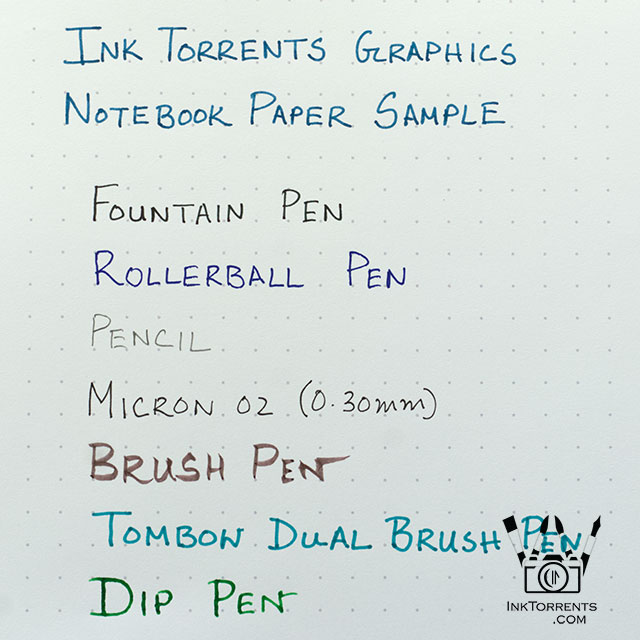 INK TORRENTS GRAPHICS
NOTEBOOK PAPER SAMPLE
FOUNTAIN PEN
ROLLERBALL PEN
PENCIL
MICRON 02 (0.30mm)
BRUSH PEN
TOMBON DUAL BRUSH PEN
DIP PEN
INKTORRENTS
.COM